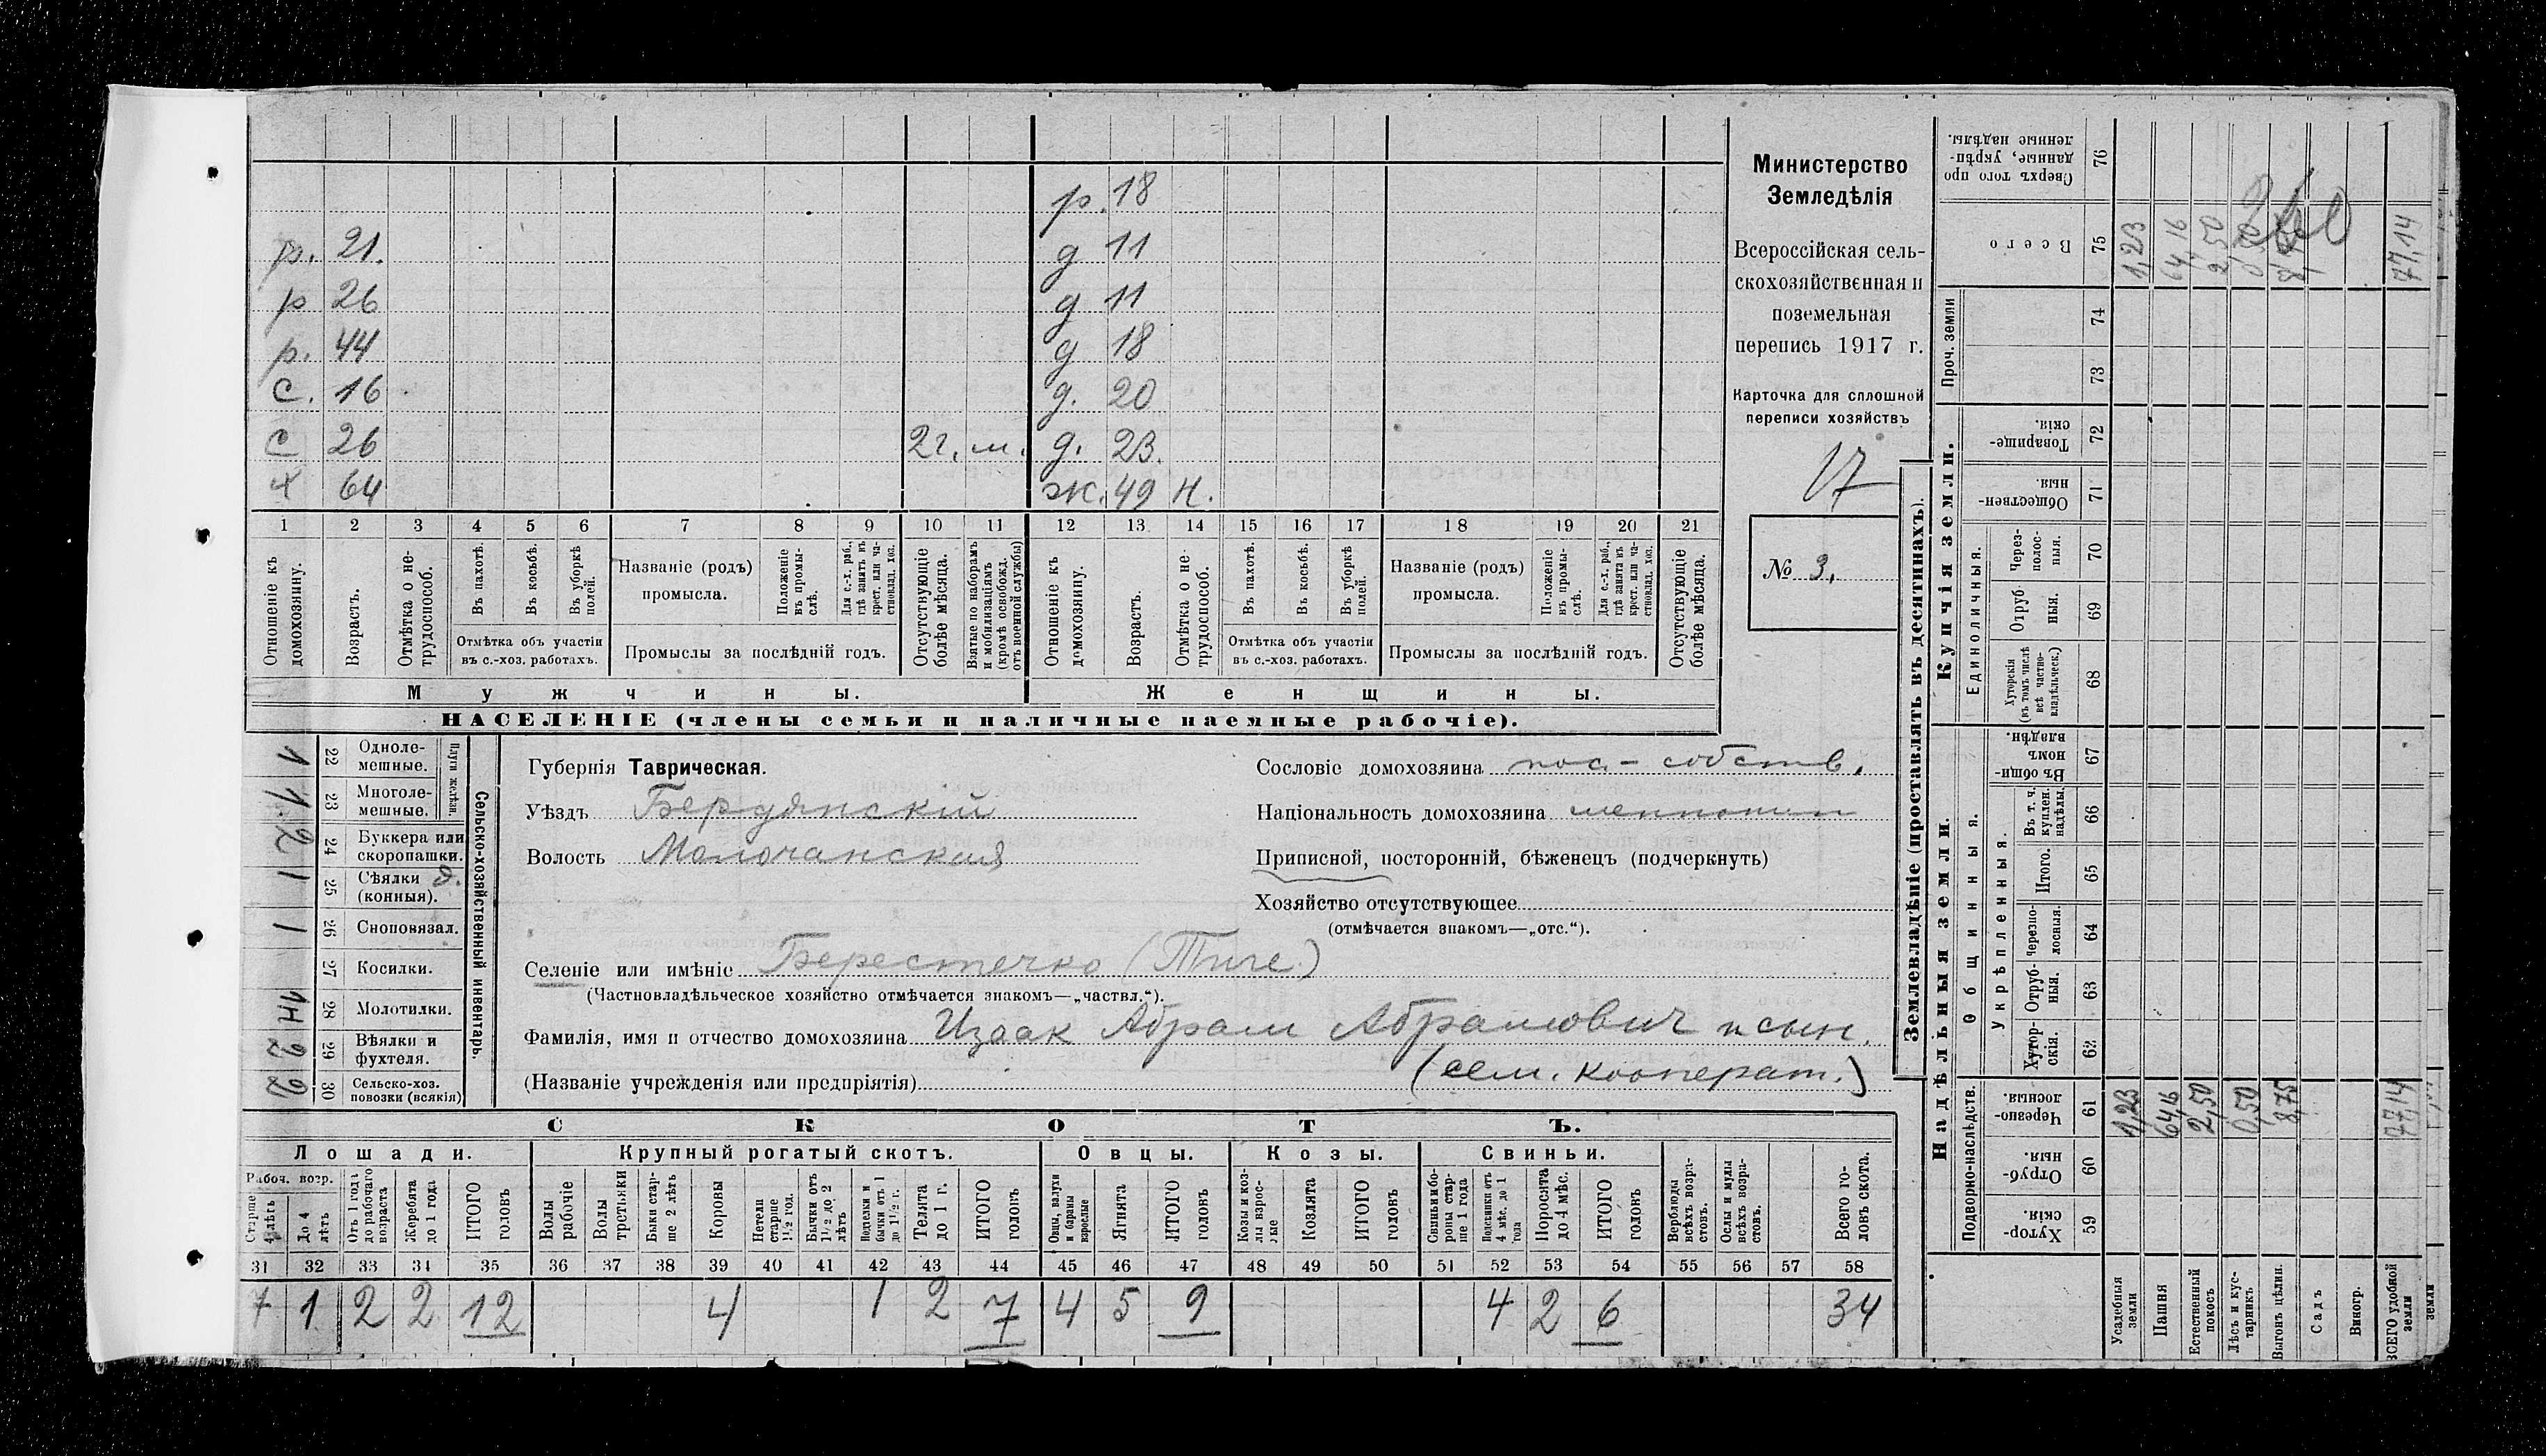 Министерство
Земледѣлія
Всероссійская сель-
скохозяйственная и
поземельная
перепись 1917 г.
Карточка для сплошной
переписи хозяйствъ
17
№ 3.
р. 18
р. 21. д 11
р 26 д 11
р. 44 д 18
с. 16 д. 20
с 26 2 г. м. д. 23.
х 64 ж. 49 н.
1 2 3 4 5 6 7 8 9 10 11 12 13 14 15 16 17 18 19 20 21
Отношеніе къ домохозяину.
Возрастъ.
Отмѣтка о нетрудоспособ.
Въ пахотѣ.
Въ косьбѣ.
Въ уборкѣ полей.
Отмѣтка объ участіи
въ с.-хоз. работахъ.
Названіе (родъ)
промысла.
Положеніе въ промыслѣ.
Для с.-х. раб., гдѣ занятъ въ крест. или частновлад. хоз.
Промыслы за послѣдній годъ.
Отсутствующіе болѣе мѣсяца.
Взятые по наборамъ и мобилизаціямъ (кромѣ освобожд. отъ военной службы)
Отношеніе къ домохозяину.
Возрастъ.
Отмѣтка о нетрудоспособ.
Въ пахотѣ.
Въ косьбѣ.
Въ уборкѣ полей.
Отмѣтка объ участіи
въ с.-хоз. работахъ.
Названіе (родъ)
промысла.
Положеніе въ промыслѣ.
Для с.-х. раб., гдѣ занята въ крест. или частновлад. хоз.
Промыслы за послѣдній годъ.
Отсутствующіе болѣе мѣсяца.
Мужчины. Женщины.
НАСЕЛЕНІЕ (члены семьи и наличные наемные рабочіе).
Сельско-хозяйственный инвентарь.
Плуги желѣзн.
1 22 Однолемешные.
1 23 Многолемешные.
2 24 Буккера или скоропашки.
1 25 Сѣялки (конныя). д.
1 26 Сноповязал.
27 Косилки.
28 Молотилки.
2 29 Вѣялки и фухтеля.
2 30 Сельско-хоз. повозки (всякія)
Губернія Таврическая.
Уѣздъ Бердянскій
Волость Молочанская
Сословіе домохозяина пос.-собств.
Національность домохозяина меннонит
Приписной, посторонній, бѣженецъ (подчеркнуть)
Хозяйство отсутствующее
(отмѣчается знакомъ—„отс.“).
Селеніе или имѣніе Берестечко (Тиге)
(Частновладѣльческое хозяйство отмѣчается знакомъ—„частвл.“).
Фамилія, имя и отчество домохозяина Изаак Абрам Абрамович и сын.
(Названіе учрежденія или предпріятія) (сем. кооперат.)
СКОТЪ.
Лошади. Крупный рогатый скотъ. Овцы. Козы. Свиньи.
Рабоч. возр.
Старше 4 лѣтъ
До 4 лѣтъ
Отъ 1 года до рабочаго возраста
Жеребята до 1 года
ИТОГО головъ
Волы рабочіе
Волы третьяки
Быки старше 2 лѣтъ
Коровы
Нетели старше 1½ год.
Бычки отъ 1½ до 2 лѣтъ
Подтелки и бычки отъ 1 до 1½ г.
Телята до 1 г.
ИТОГО головъ
Овцы, валухи и бараны взрослые
Ягнята
ИТОГО головъ
Козы и козлы взрослые
Козлята
ИТОГО головъ
Свиньи и бороны старше 1 года
Подсвинки отъ 4 мѣс. до 1 года
Поросята до 4 мѣс.
ИТОГО головъ
Верблюды всѣхъ возрастовъ.
Ослы и мулы всѣхъ возрастовъ.
Всего головъ скота.
31 32 33 34 35 36 37 38 39 40 41 42 43 44 45 46 47 48 49 50 51 52 53 54 55 56 57 58
7 1 2 2 12 4 1 2 7 4 5 9 4 2 6 34
Землевладѣніе (проставлять въ десятинахъ).
Купчія земли.
Надѣльныя земли.
Проч. земли
Единоличныя.
Общинныя.
Укрѣпленныя.
Подворно-наслѣдств.
Сверхъ того проданные, укрѣпленные надѣлы. 76
Всего 75 1,23 64,16 2,50 77,14
260
74
73
Товарищескія. 72
Общественныя. 71
Черезполосныя. 70
Отрубныя. 69
Хуторскія (въ томъ числѣ всѣ частновладѣльческ.) 68
Въ общиномъ владѣн. 67
Въ т. ч. куплен. надѣлы. 66
Итого. 65
Черезполосныя. 64
Отрубныя. 63
Хуторскія. 62
Черезполосныя. 61 1,23 64,16 2,50 0,50 8,75 77,14
Отрубныя. 60
Хуторскія. 59
Усадебныя земли
Пашня
Естественный покосъ
Лѣсъ и кустарникъ
Выгонъ цѣлин.
Садъ
Виногр.
ВСЕГО удобной земли
земли